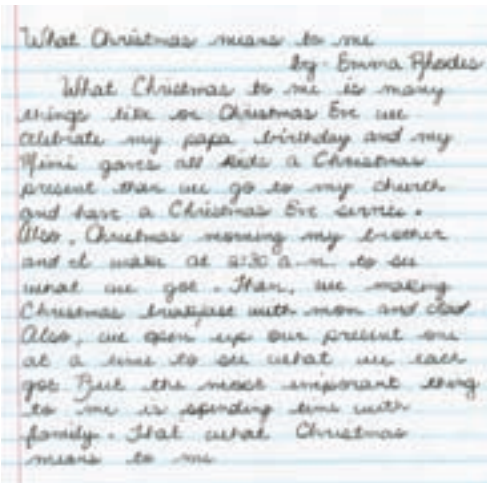 What Christmas means to me
by Emma Rhodes
What Christmas to me is many
things like on Christmas Eve we
celebrate my papa birthday and my
Mimi gaves all kids a Christmas
present then we go to my church
and have a Christmas Eve service.
Also, Christmas morning my brother
and I wake at :30 a.m. to see
what we got. Then, we making
Christmas breakfast with mom and dad
Also, we open up our present one
at a time to see what we each
got But the most imporant thing
to me is spending time with
family. That what Christmas
means to me